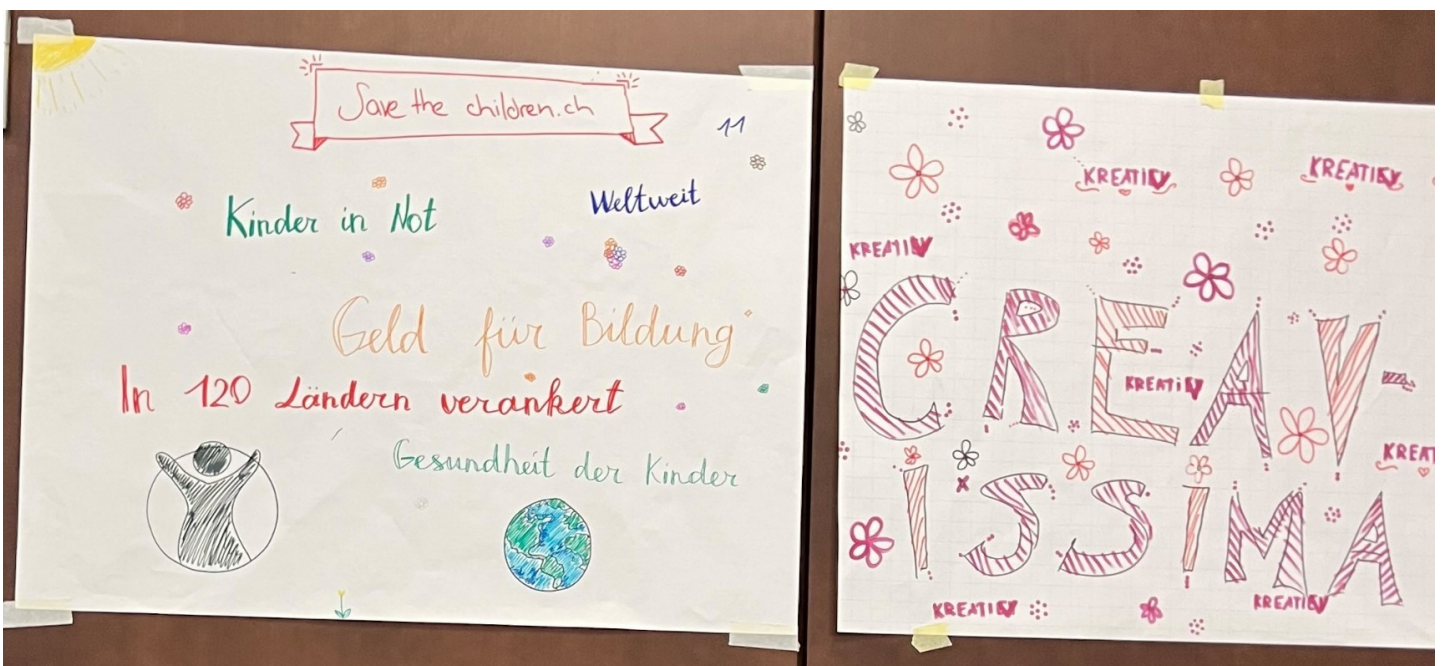 Save the children.ch
11
Kinder in Not
Weltweit
Geld für Bildung
In 120 Ländern verankert
Gesundheit der Kinder
KREATIV
KREATIV
KREATIV
CREAV-
KREATIV
KREAT
ISSIMA
KREATIV
KREATIV